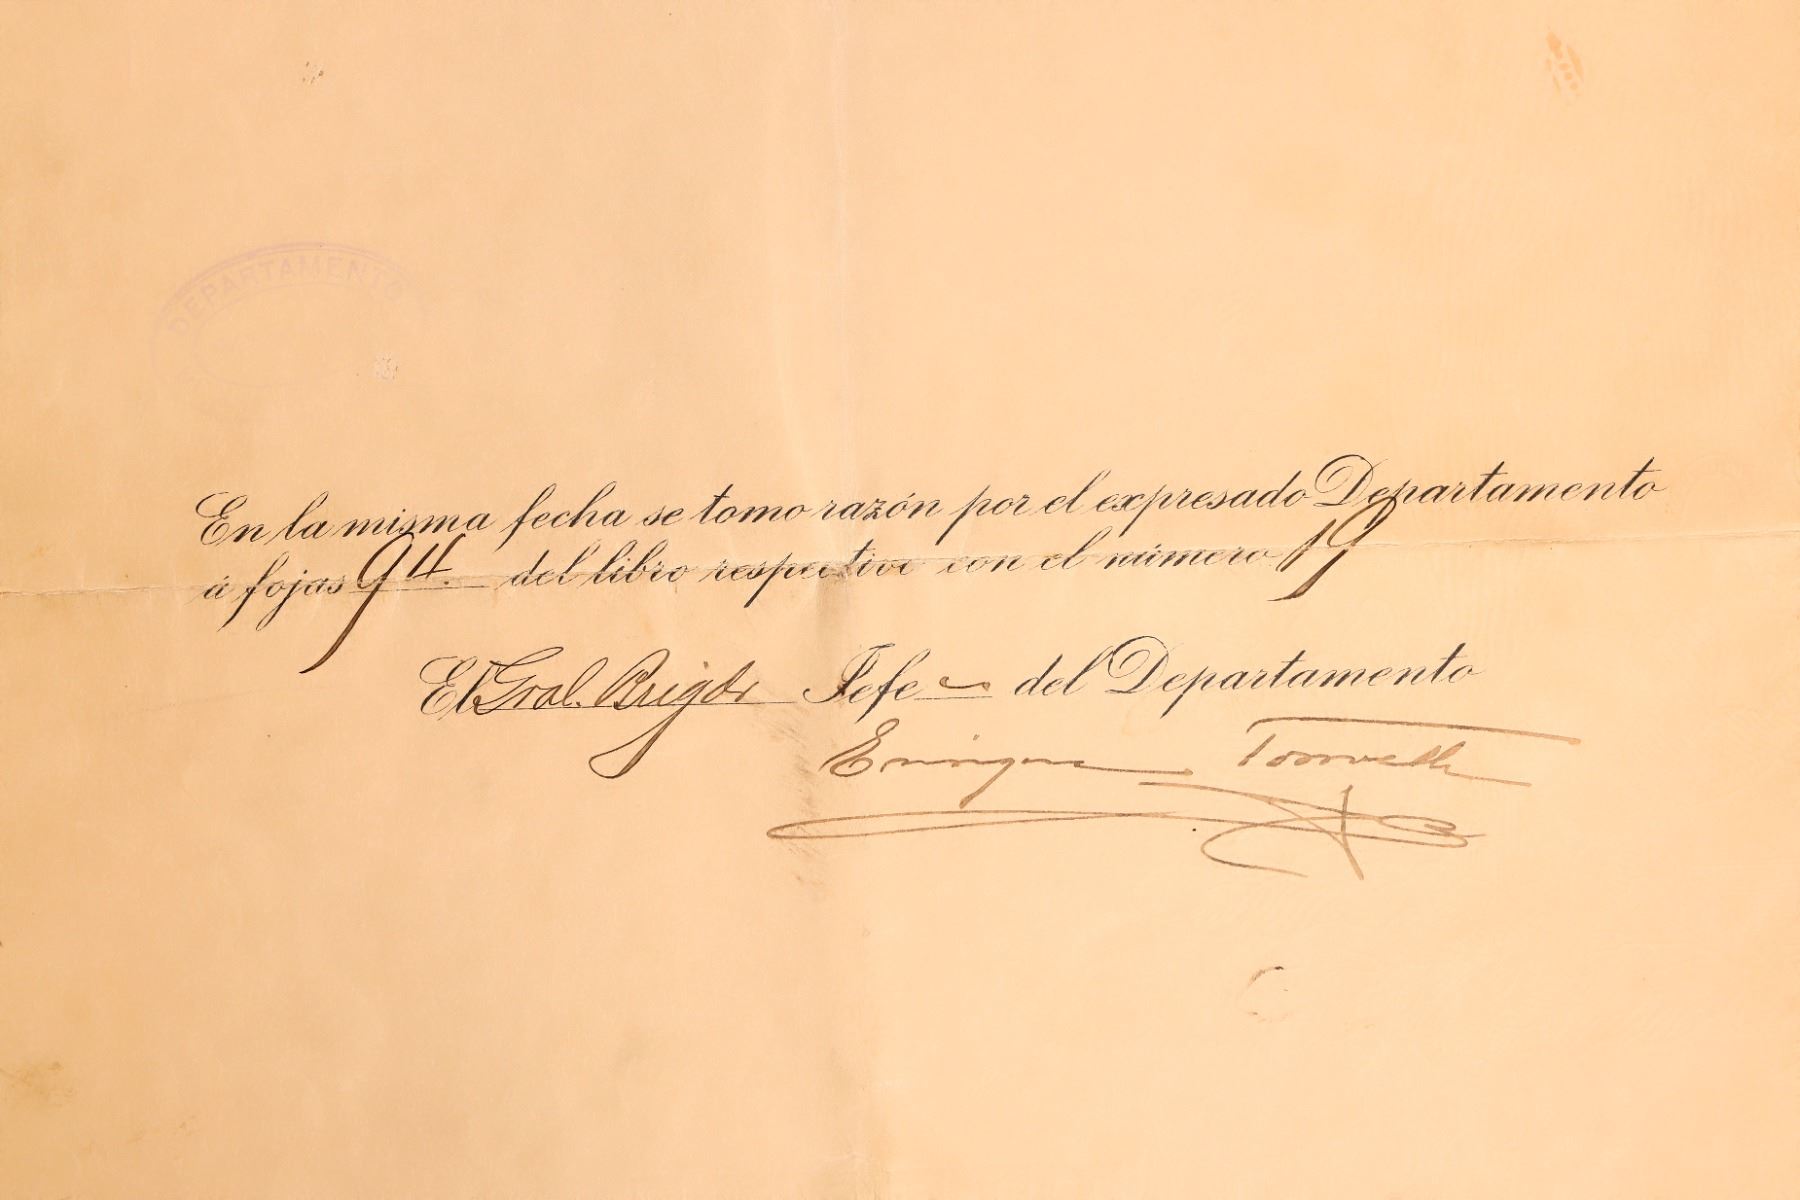 DEPARTAMENTO
En la misma fecha se tomo razón por el expresado Departamento
á fojas 94. del libro respectivo con el número 19
El Gral. Brigdr Jefe del Departamento
Enrique Torroella